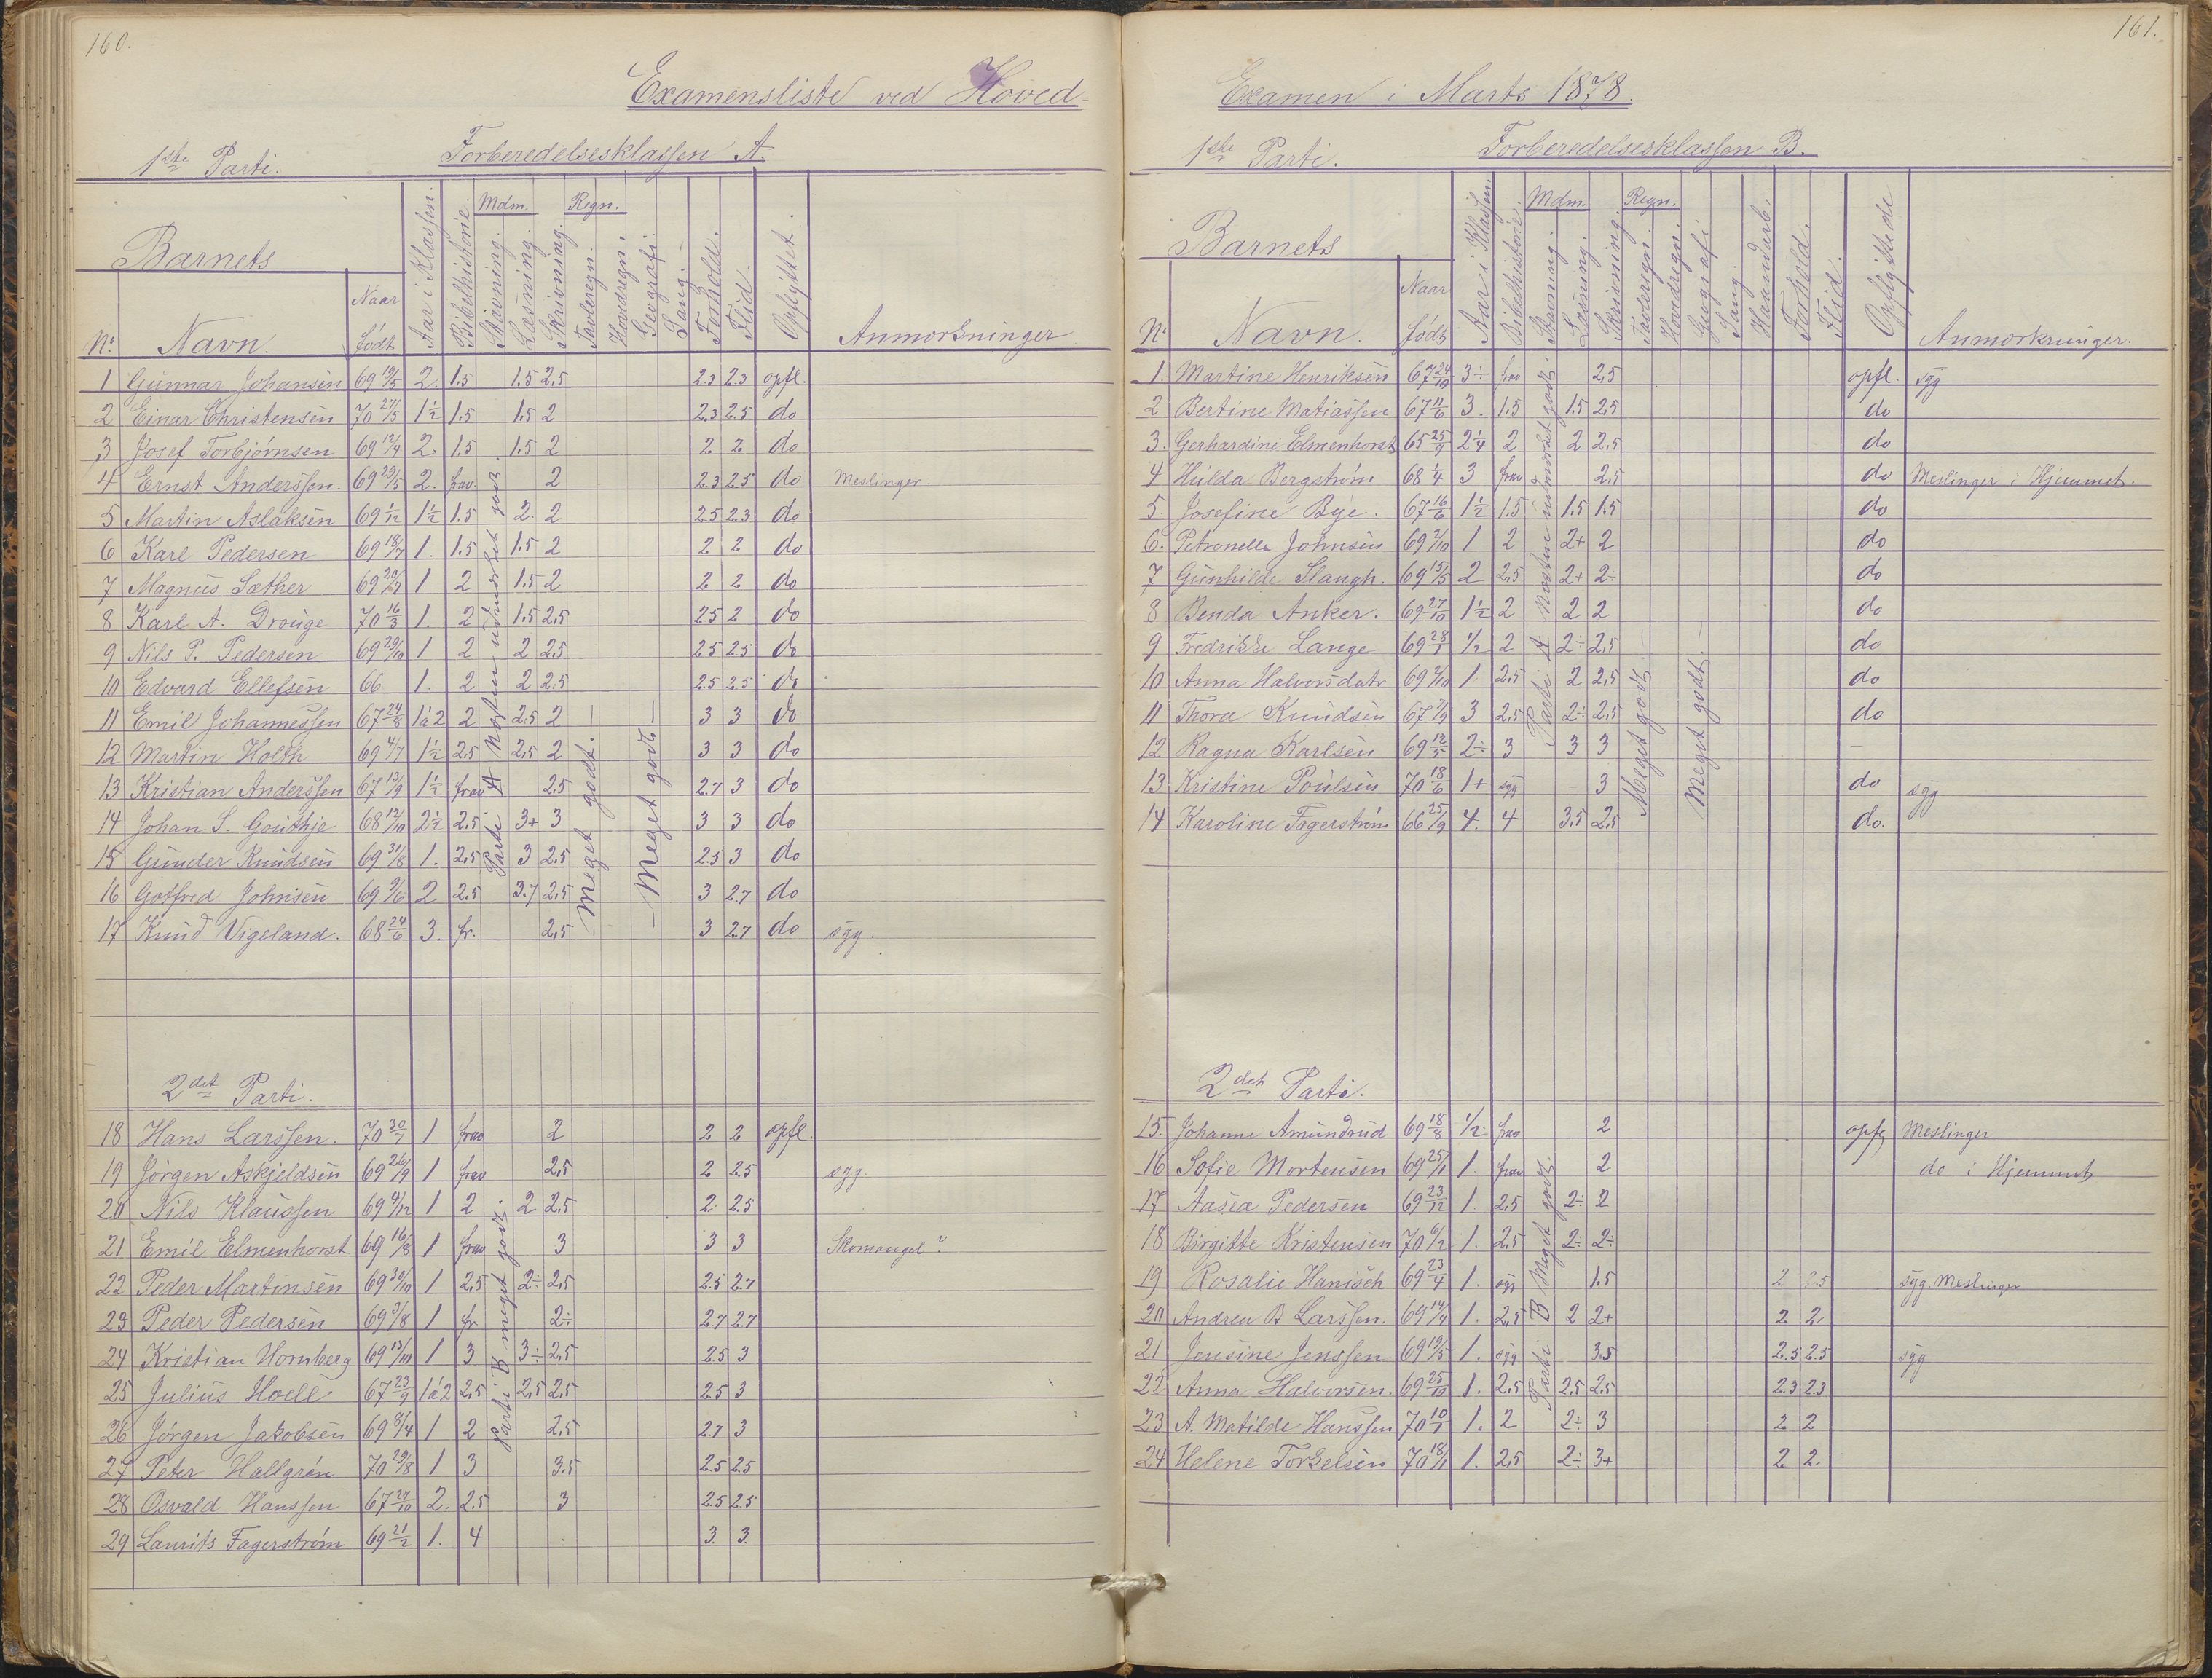 160.
Examensliste ved Hoved-
1ste Parti. Forberedelsesklassen A.
Barnets
Mdm. Regn.
No. Navn. Naar født Aar i Klassen. Bibelhistorie. Stavning. Læsning. Skrivning. Tavleregn. Hovedregn. Geografi. Sang. Forhold. Flid. Opflyttet. Anmærkninger
1 Gunnar Johansen 69 19/5 2. 1.5 1.5 2.5 2.3 2.3 opfl.
2 Einar Christensen 70 27/5 1½ 1.5 1.5 2 2.3 2.5 do
3 Josef Torbjørnsen 69 12/4 2. 1.5 1.5 2 2 2 do
4 Ernst Anderssen. 69 29/5 2. frav. 2 2.3 2.5 do Meslinger.
5 Martin Aslaksen 69 1/12 1½ 1.5 2. 2 2.5 2.3 do
6 Karl Pedersen 69 18/7 1. 1.5 1.5 2 2 2 do
7 Magnus Sæther 69 1 2 1.5 2 2 2 do
8 Karl A. Drouge 70 16/3 1. 2 1.5 2.5 2.5 2 do
9 Nils P. Pedersen 69 29/10 1 2 2 2.5 2.5 2.5 do
10 Edvard Ellefsen 66 1. 2 2 2.5 2.5 2.5 do
11 Emil Johannessen 67 24/8 1 à 2 2 2.5 2 3 3 do
12 Martin Holth 69 4/7 1½ 2.5 2.5 2 3 3 do
13 Kristian Anderssen 67 13/9 1½ frav 2.5 2.7 3 do
14 Johan S. Gouthje 68 12/10 2½ 2.5 3+ 3 3 3 do
15 Gunder Knudsen 69 31/8 1. 2.5 3 2.5 2.5 3 do
16 Gotfred Johnsen 69 9/6 2 2.5 3.7 2.5 3 2.7 do
17 Knud Vigeland. 68 24/6 3. fr. 2.5 3 2.7 do syg.
Parti A næsten udmærket godt
- Meget godt. -
- Meget godt -
2det Parti.
18 Hans Larssen. 70 30/7 1 frav 2 2 2 opfl.
19 Jørgen Askjeldsen 69 26/9 1 frav 2.5 2 2.5 syg.
20 Nils Klaussen 69 4/12 1 2 2 2.5 2. 2.5
21 Emil Elmenhorst 69 16/8 1 frav 3 3 3 Skomangel?
22 Peder Martinsen 69 30/10 1 2.5 2÷ 2.5 2.5 2.7
23 Peder Pedersen 69 3/8 1 fr 2÷ 2.7 2.7
24 Kristian Hornberg 69 13/10 1 3 3÷ 2.5 2.5 3
25 Julius Hoell 67 23/9 1 à 2 2.5 2.5 2.5 2.5 3
26 Jørgen Jakobsen 69 8/4 1 2 2.5 2.7 3
27 Peter Hallgren 70 29/8 1 3 3.5 2.5 2.5
28 Osvald Hanssen 67 27/10 2. 2.5 3 2.5 2.5
29 Laurits Fagerstrøm 69 21/2 1. 4 3. 3.
Parti B meget godt.
161.
Examen i Marts 1878.
1ste Parti. Forberedelsesklassen B.
Barnets
Mdm. Regn.
No Navn. Naar født Aar i Klassen. Bibelhistorie. Stavning. Læsning. Skrivning. Tavleregn. Hovedregn. Geografi Sang. Haandarb. Forhold. Flid. Opflyttede Anmærkninger.
1. Martine Henriksen 67 24/10 3÷ frav 2.5 opfl. syg
2 Bertine Matiassen 67 11/6 3. 1.5 1.5 2.5 do
3. Gerhardine Elmenhorst 65 25/9 2¼ 2 2 2.5 do
4 Hulda Bergstrøm 68 1/4 3 frav 2.5 do Meslinger i Hjemmet.
5. Josefine Bye. 67 16/6 1½ 1.5 1.5 1.5 do
6. Petronella Johnsen 69 2/10 1 2 2+ 2 do
7 Gunhilde Slangh. 69 15/5 2 2.5 2+ 2÷ do
8 Benda Anker. 69 27/10 1½ 2 2 2 do
9 Fredrikke Lange 69 28/1 ½ 2 2÷ 2.5 do
10 Anna Halvorsdatr 69 2/10 1 2.5 2 2.5 do
11 Thora Knudsen 67 7/9 3 2.5 2÷ 2.5 do
12 Ragna Karlsen 69 12/5 2÷ 3 3 3 -
13 Kristine Poulsen 70 18/6 1+ syg - 3 do syg
14 Karoline Fagerstrøm 66 25/9 4. 4 3.5 2.5 do.
Parti A næsten udmærket godt.
Meget godt. -
Meget godt. -
2det Parti.
15. Johanne Amundrud 69 18/8 ½ frav 2 opfl Meslinger
16 Sofie Mortensen 69 25/1 1. frav 2 do i Hjemmet
17 Aasea Pedersen 69 23/12 1. 2.5 2÷ 2
18 Birgitte Kristensen 70 6/2 1. 2.5 2÷ 2÷
19 Rosalie Hanisch 69 23/4 1. syg 1.5 2 2.5 syg. Meslinger
20 Andrea B Larssen. 69 14/4 1. 2.5 2 2+ 2 2
21 Jensine Jenssen 69 19/5 1. syg 3.5 2.5 2.5 syg
22 Anna Halvorsen. 69 25/10 1. 2.5 2.5 2.5 2.3 2.3
23 A. Matilde Hanssen 70 10/1 1. 2 2÷ 3 2 2
24 Helene Torkelsen 70 18/1 1. 2.5 2÷ 3+ 2 2.
Parti B Meget godt.